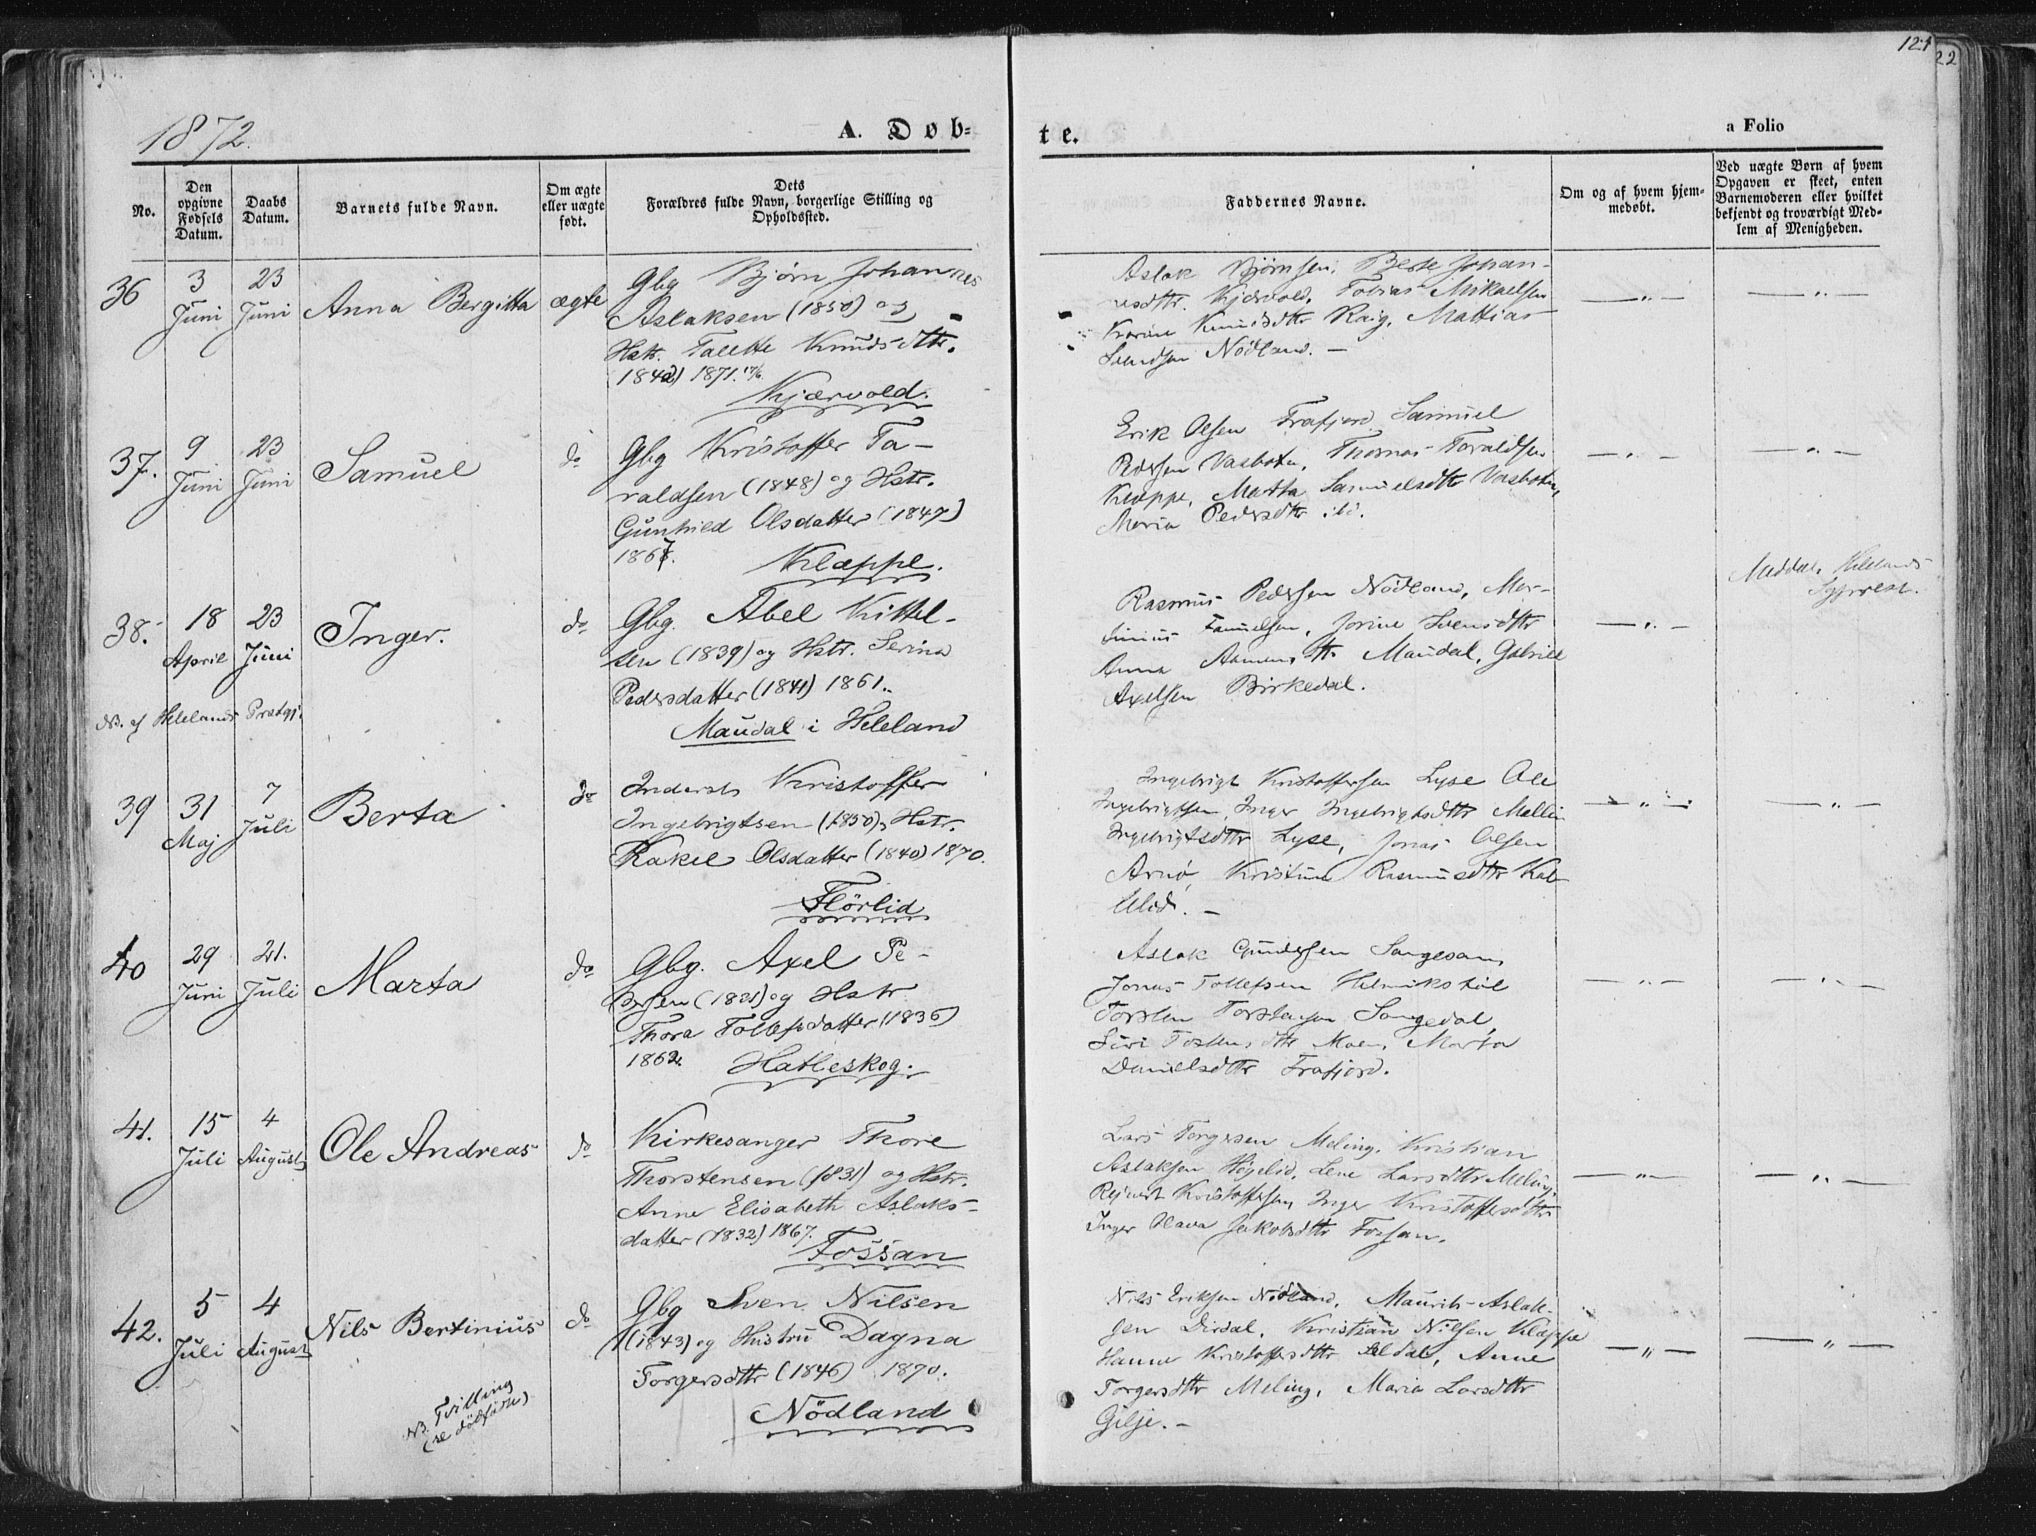 121
22
1872.
A. Døb-
te.
a Folio
No.
Den opgivne Fødsels Datum.
Daabs Datum.
Barnets fulde Navn.
Om ægte eller uægte født.
Dets Forældres fulde Navn, borgerlige Stilling og Opholdssted.
Faddernes Navne.
Om og af hvem hjemmedøbt.
Ved uægte Børn af hvem Opgaven er skeet, enten Barnemoderen eller hvilket bekjendt og troværdigt Medlem af Menigheden.
36
3 Juni
23 Juni
Anna Bergitta
ægte
Gbg Bjørn Johannes
Aslaksen (1850) og
Hstr. Talette Knudsdtr.
(1842) 1871.
Kjærvold.
Aslak Bjørnsen, Berte Johan-
nesdttr. Kjærvold, Tobias Mikaelsen
Karine Knudsdttr Raig, Mattias
Svendsen Nödland. —
37.
9 Juni
23 Juni
Samuel
do
Gbg Kristoffer Ta-
raldsen (1848) og Hstr.
Gunhild Olsdatter (1847)
1867.
Klæppe.
Erik Olsen Frafjord, Samuel
Pedersen Vasbotn, Thomas Taraldsen
Klæppe, Marta Samuelsdttr Vasbotn,
Maria Pedersdttr ibd.
38.
18 April
23 Juni
Inger.
do
Gbg. Abel Kittel-
sen (1839) og Hstr. Serina
Pedersdatter (1841) 1861.
Maudal i Heleland
NB. af Helelands Prstgj.
Rasmus Pedersen Nödland, Mar-
tinius Samuelsen, Jorine Svensdttr
Anna Maudal, Gabriel
Axelsen Birkedal.
Helelands
39
31 Maj
7 Juli
Berta
do
Inderst Kristoffer
Ingebrigtsen (1850), Hstr.
Rakel Olsdatter (1840) 1870.
Flörlid
Ingebrigt Kristoffersen Lyse Ole
Ingebrigtsen, Inger Ingebrigtsdttr Malli
Ingebrigtsdttr Lyse, Jonas Olsen
Arnö, Kristine Rasmusdttr Kal-
lelid. —
40
29 Juni
21. Juli
Marta
do
Gbg. Axel Pe-
dersen (1831) og Hstr
Thora Tollefsdatter (1836)
1862.
Hatleskog.
Aslak Gundersen Sangesan,
Jonas Tollefsen Helmikstöl
Torsten Torstensen Songedal,
Siri Tostensdttr Moen, Marta
Danielsdttr Frafjord.
41.
15 Juli
4 August
Ole Andreas
do
Kirkesanger Thore
Thorstensen (1831) og Hstr.
Anne Elisabeth Aslaks-
datter (1832) 1867.
Fossan
Lars Torgersen Meling, Kristian
Aslaksen Högelid, Lene Larsdttr Meling,
Rejnert Kristoffersen, Inger Kristoffersdttr
Inger Olava Jakobsdttr Fossan.
42.
5 Juli
4 August
Nils Bertinius
do
Gbg Sven Nilsen
(1843) og Hustru Dagna
Torgersdttr (1846) 1870.
Nödland
NB. Tvilling
(se dödføde)
Nils Eriksen Nödland, Maurits Aslak-
sen Dirdal, Kristian Nilsen Klæppe
Hanne Kristoffersdttr Eldal, Anne
Torgersdttr Meling, Maria Larsdttr
Gilje. —